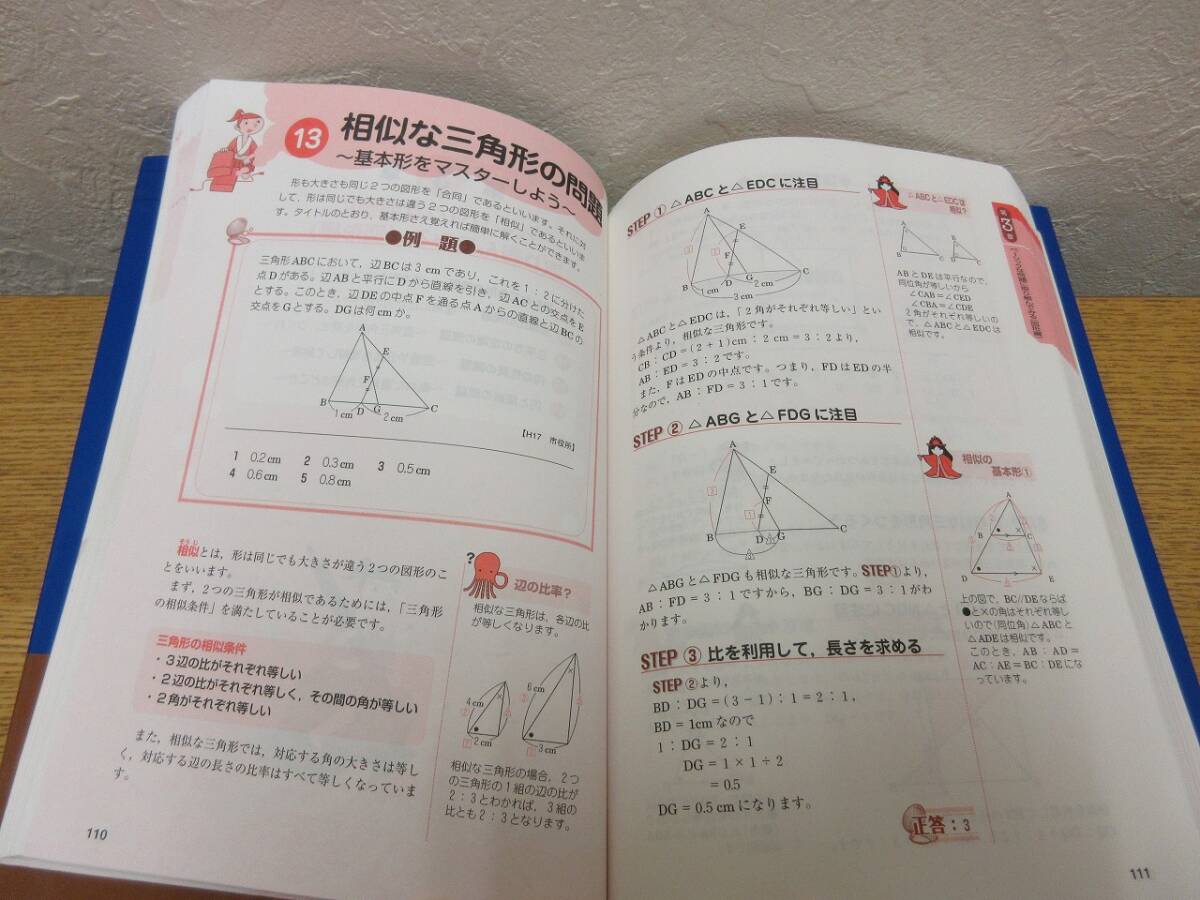 13
相似な三角形の問題
～基本形をマスターしよう～
形も大きさも同じ2つの図形を「合同」であるといいます。それに対
して，形は同じでも大きさは違う2つの図形を「相似」であるといいま
す。タイトルのとおり，基本形さえ覚えれば簡単に解くことができます。
●例 題●
三角形ABCにおいて，辺BCは3cmであり，これを1：2に分けた
点Dがある。辺ABと平行にDから直線を引き，辺ACとの交点をE
とする。このとき，辺DEの中点Fを通る点Aからの直線と辺BCの
交点をGとする。DGは何cmか。
A
E
F
B D G C
1cm 2cm
【H17 市役所】
1 0.2cm 2 0.3cm 3 0.5cm
4 0.6cm 5 0.8cm
そうじ
相似とは，形は同じでも大きさが違う2つの図形のこ
とをいいます。
まず，2つの三角形が相似であるためには，「三角形
の相似条件」を満たしていることが必要です。
三角形の相似条件
・3辺の比がそれぞれ等しい
・2辺の比がそれぞれ等しく，その間の角が等しい
・2角がそれぞれ等しい
また，相似な三角形では，対応する角の大きさは等し
く，対応する辺の長さの比率はすべて等しくなっていま
す。
?
辺の比率？
相似な三角形は，各辺の比
が等しくなります。
4cm
6cm
2cm
3cm
相似な三角形の場合，2つ
の三角形の1組の辺の比が
2：3とわかれば，3組の
比とも2：3となります。
110
STEP ① △ABCと△EDCに注目
A
E
F
G
B D C
1cm 2cm
3cm
△ABCと△EDCは，「2角がそれぞれ等しい」とい
う条件より，相似な三角形です。
CB：CD＝(2＋1)cm：2cm＝3：2より，
AB：ED＝3：2です。
また，FはEDの中点です。つまり，FDはEDの半
分なので，AB：FD＝3：1です。
STEP ② △ABGと△FDGに注目
A
E
F
B D G C
△ABGと△FDGも相似な三角形です。STEP①より，
AB：FD＝3：1ですから，BG：DG＝3：1がわ
かります。
STEP ③ 比を利用して，長さを求める
STEP②より，
BD：DG＝(3－1)：1＝2：1，
BD＝1cmなので
1：DG＝2：1
DG＝1×1÷2
＝0.5
DG＝0.5cmになります。
正答：3
△ABCと△EDCは
相似？
A
B C
E
D C
ABとDEは平行なので，
同位角が等しいから
∠CAB＝∠CED
∠CBA＝∠CDE
2角がそれぞれ等しいの
で，△ABCと△EDCは
相似です。
相似の
基本形①
A
B C
D E
上の図で，BC//DEならば
●と×の角はそれぞれ等し
いので(同位角)△ABCと
△ADEは相似です。
このとき，AB：AD＝
AC：AE＝BC：DEにな
っています。
第3章
111